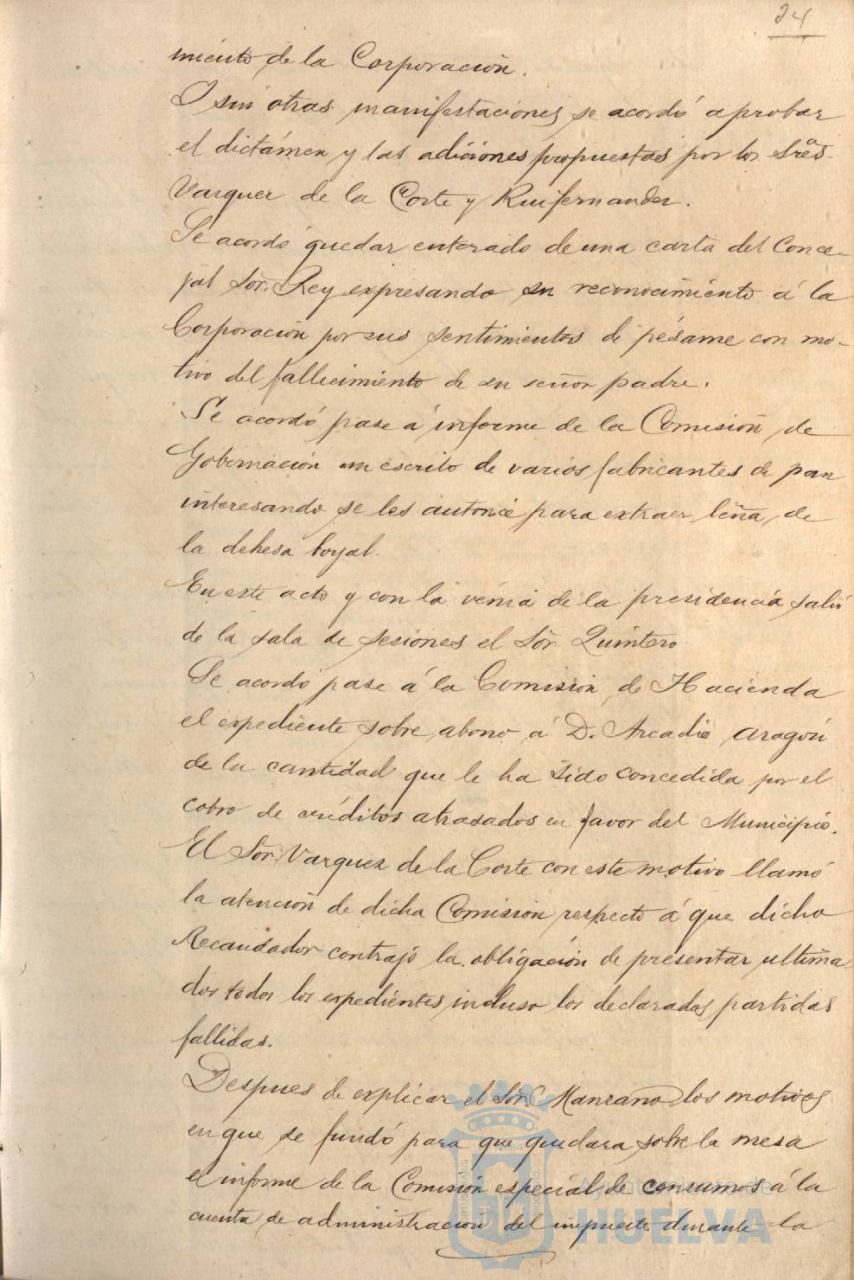 24
miento de la Corporación.
I sin otras manifestaciones se acordó aprobar
el dictámen y las adiciones propuestas por los Sres.
Vazquez de la Corte y Ruifernandez.
Se acordó quedar enterado de una carta del Conce-
jal Sor. Rey expresando su reconocimiento á la
Corporación por sus sentimientos de pésame con mo-
tivo del fallecimiento de su señor padre.
Se acordó pase á informe de la Comisión de
Gobernación un escrito de varios fabricantes de pan
interesando se les autorice para extraer leña de
la dehesa boyal.
En este acto y con la venia de la presidencia salió
de la sala de sesiones el Sor. Quintero.
Se acordó pase á la Comisión de Hacienda
el expediente sobre abono á D. Arcadio Aragón
de la cantidad que le ha sido concedida por el
cobro de créditos atrasados en favor del Municipio.
El Sor. Vazquez de la Corte con este motivo llamó
la atención de dicha Comisión respecto á que dicho
Recaudador contrajo la obligación de presentar ultima-
dos todos los expedientes, incluso los declarados partidas
fallidas.
Despues de explicar el Sor. Manzano los motivos
en que se fundó para que quedara sobre la mesa
el informe de la Comisión especial de consumos á la
cuenta de administración del impuesto durante la
Ayuntamiento de
HUELVA